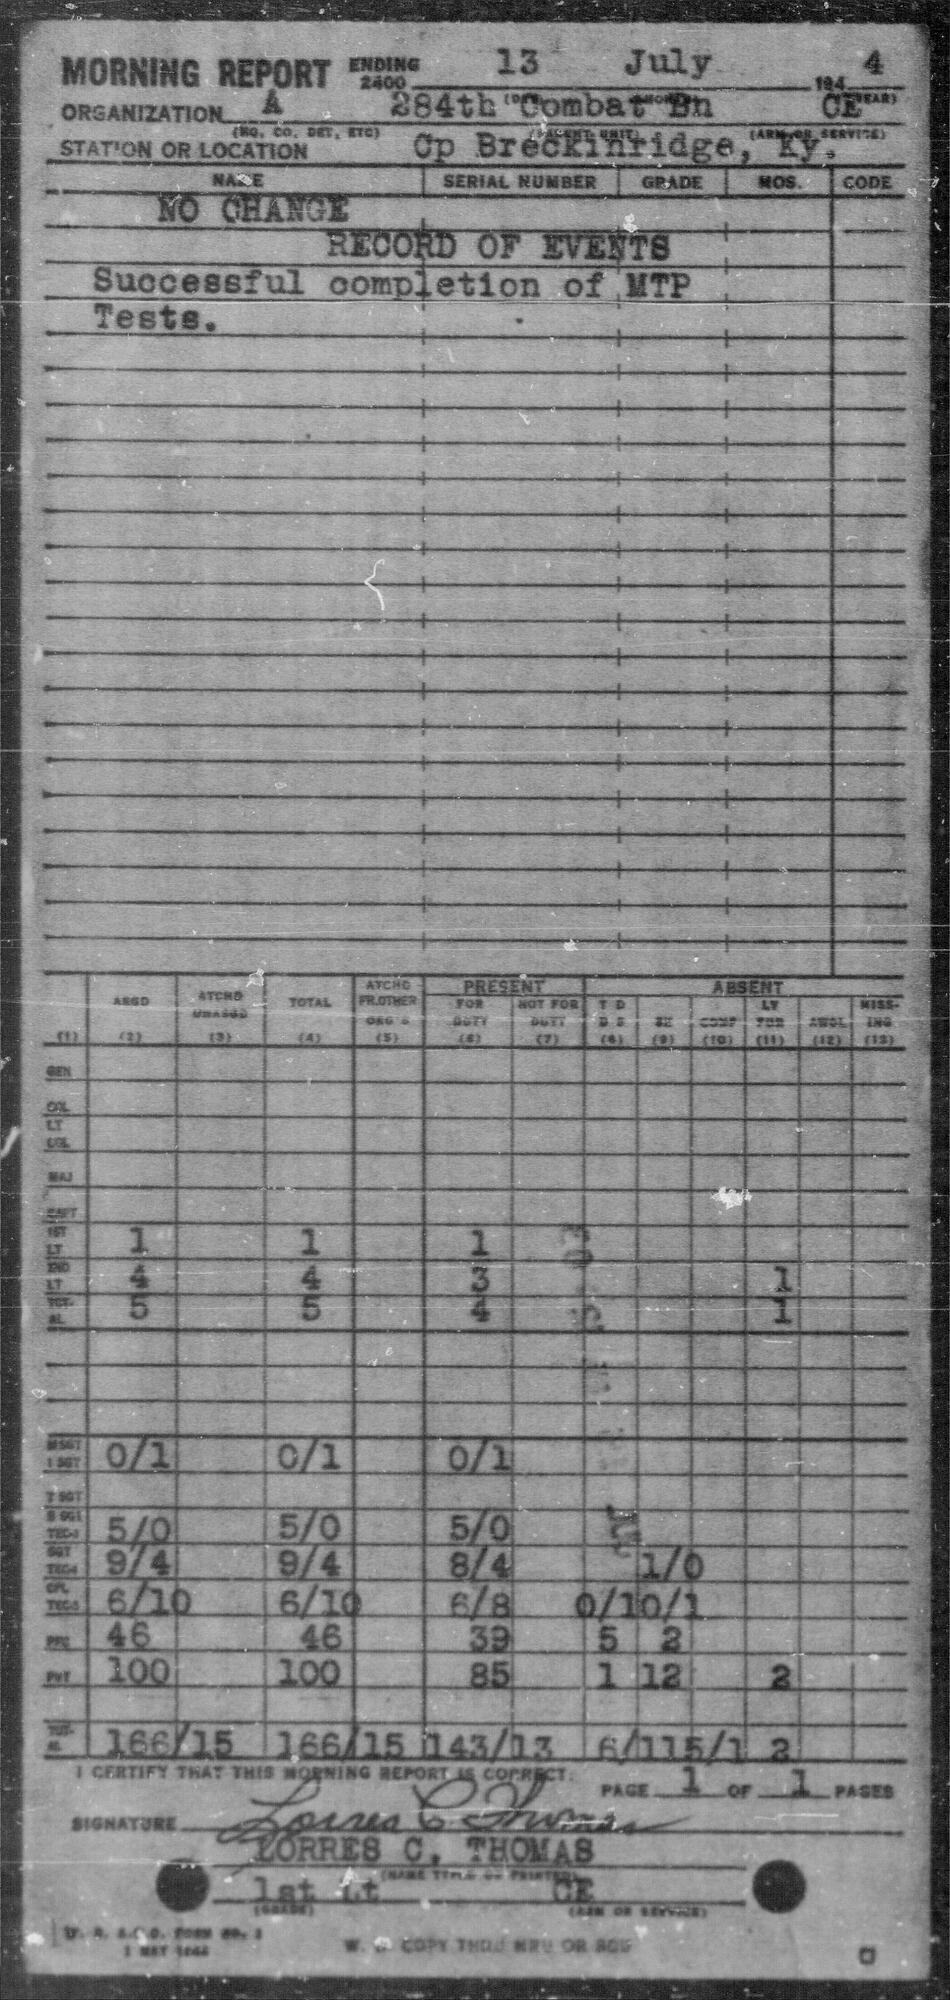 MORNING REPORT ENDING 2400 13 July 194 4
ORGANIZATION A 284th Combat Bn CE
(HQ, CO, DET, ETC) (PARENT UNIT) (ARM OR SERVICE)
STATION OR LOCATION Cp Breckinridge, Ky.
NAME SERIAL NUMBER GRADE MOS. CODE
NO CHANGE
RECORD OF EVENTS
Successful completion of MTP
Tests.
PRESENT ABSENT
ASGD ATCHD UNASGD TOTAL ATCHD FR.OTHER ORG'S FOR DUTY NOT FOR DUTY T D D S SK CONF LV FUR AWOL MISSING
(1) (2) (3) (4) (5) (6) (7) (8) (9) (10) (11) (12) (13)
GEN
COL
LT COL
MAJ
CAPT
1ST LT 1 1 1
2ND LT 4 4 3 1
TOTAL 5 5 4 1
M SGT 1 SGT 0/1 0/1 0/1
T SGT
S SGT TEC-3 5/0 5/0 5/0
SGT TEC-4 9/4 9/4 8/4 1/0
CPL TEC-5 6/10 6/10 6/8 0/1 0/1
PFC 46 46 39 5 2
PVT 100 100 85 1 12 2
TOTAL 166/15 166/15 143/13 6/1 15/1 2
I CERTIFY THAT THIS MORNING REPORT IS CORRECT.
PAGE 1 OF 1 PAGES
SIGNATURE Lorres C. Thomas
LORRES C. THOMAS
(NAME TYPED OR PRINTED)
1st Lt CE
(GRADE) (ARM OR SERVICE)
W. D. A.G.O. FORM NO. 1
1 MAY 1944
W. D. COPY THRU MRU OR